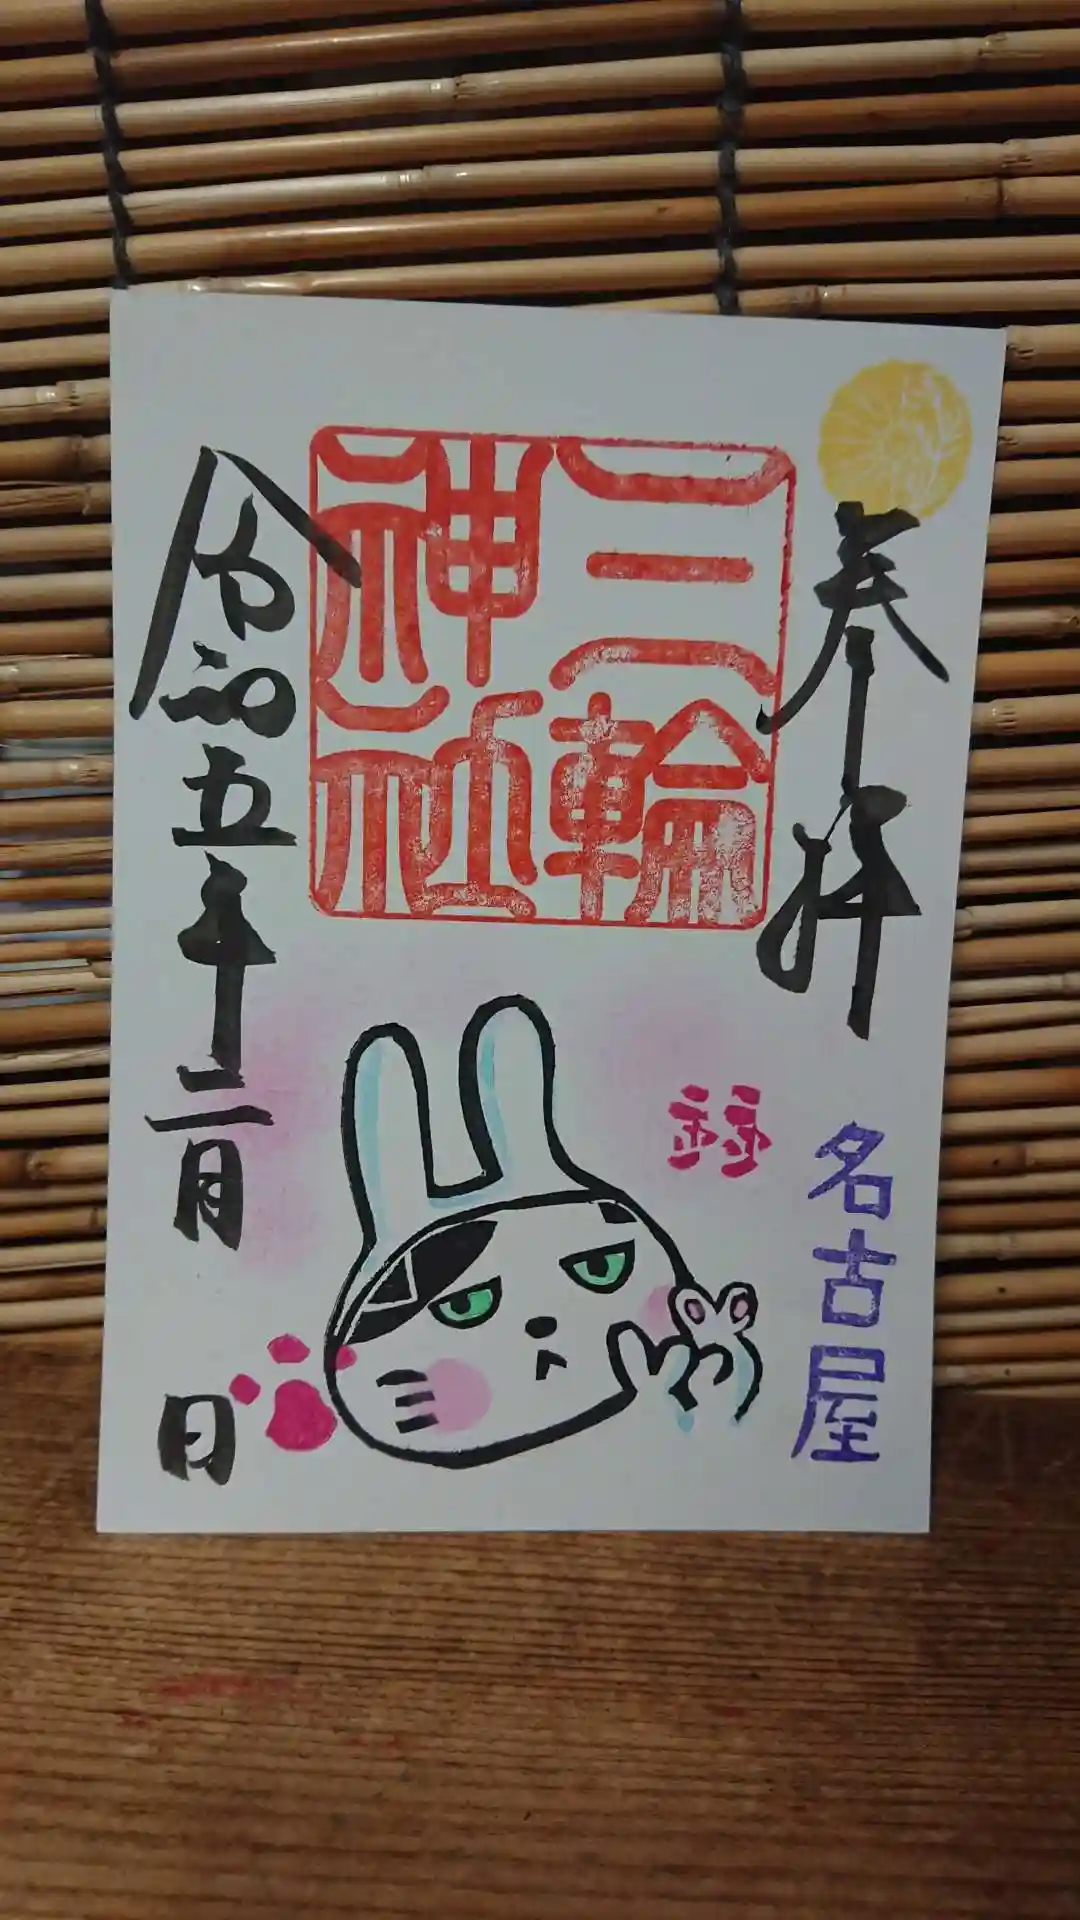 奉拝
名古屋
三輪
神社
令和五年二月 日